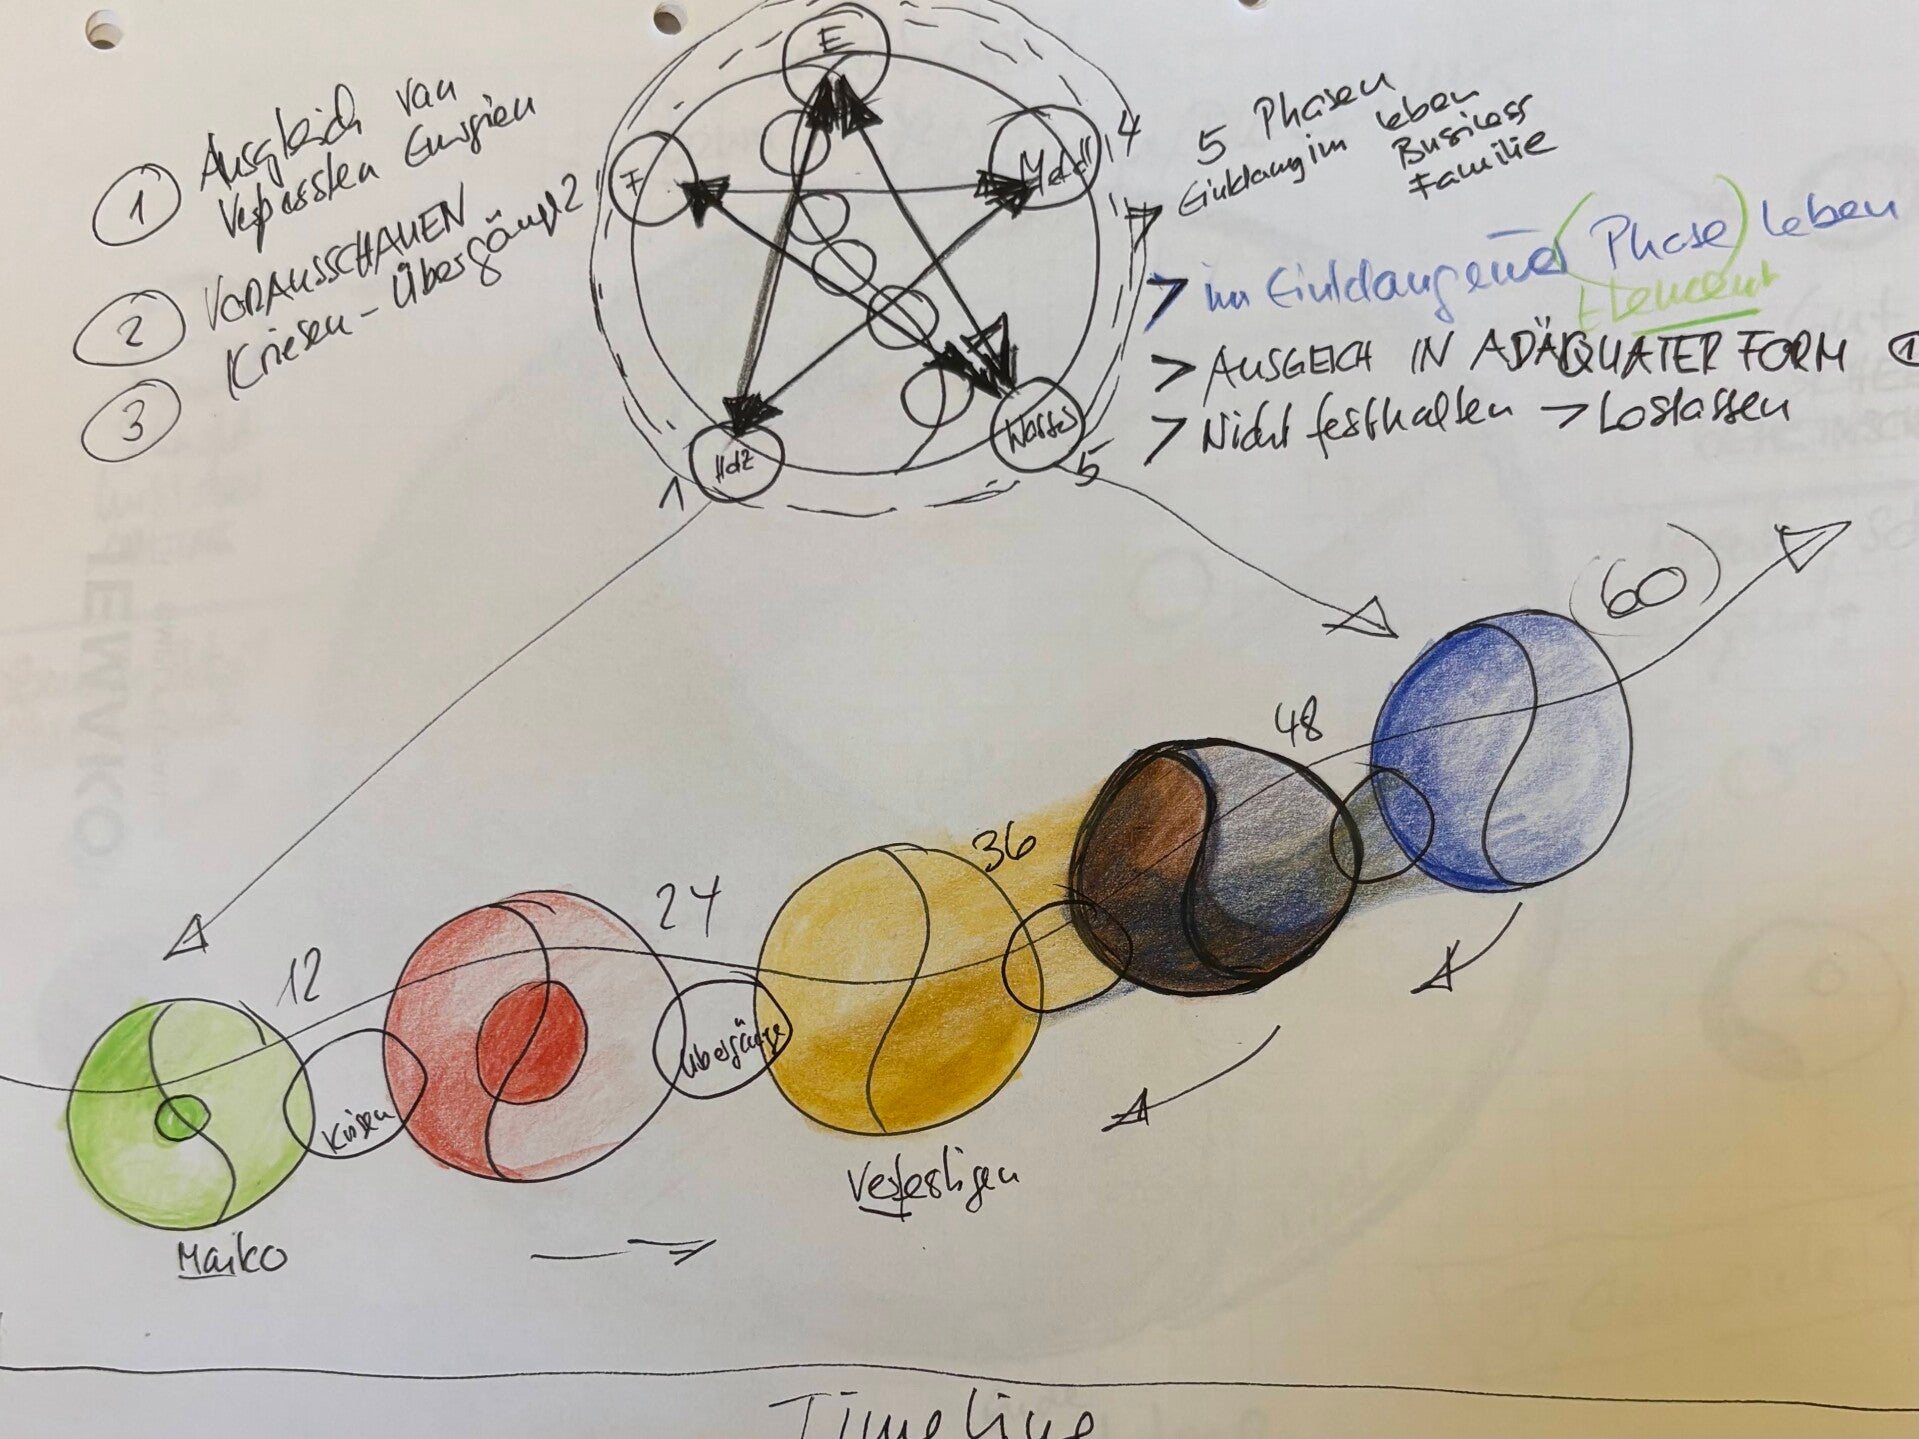 1 Ausgleich von
verpassten Energien
2 VORAUSSCHAUEN
Kriesen - Übergänge
3
E
F
Metall
4
Holz
1
Wasser
5
5 Phasen
Einklang im Leben
Business
Familie
> im Einklang einer (Phase) leben
Element
> AUSGEICH IN ADÄQUATER FORM 1
> Nicht festhalten -> Loslassen
(60)
48
36
24
12
Krisen
Übergänge
Verfestigen
Maiko
Timeline